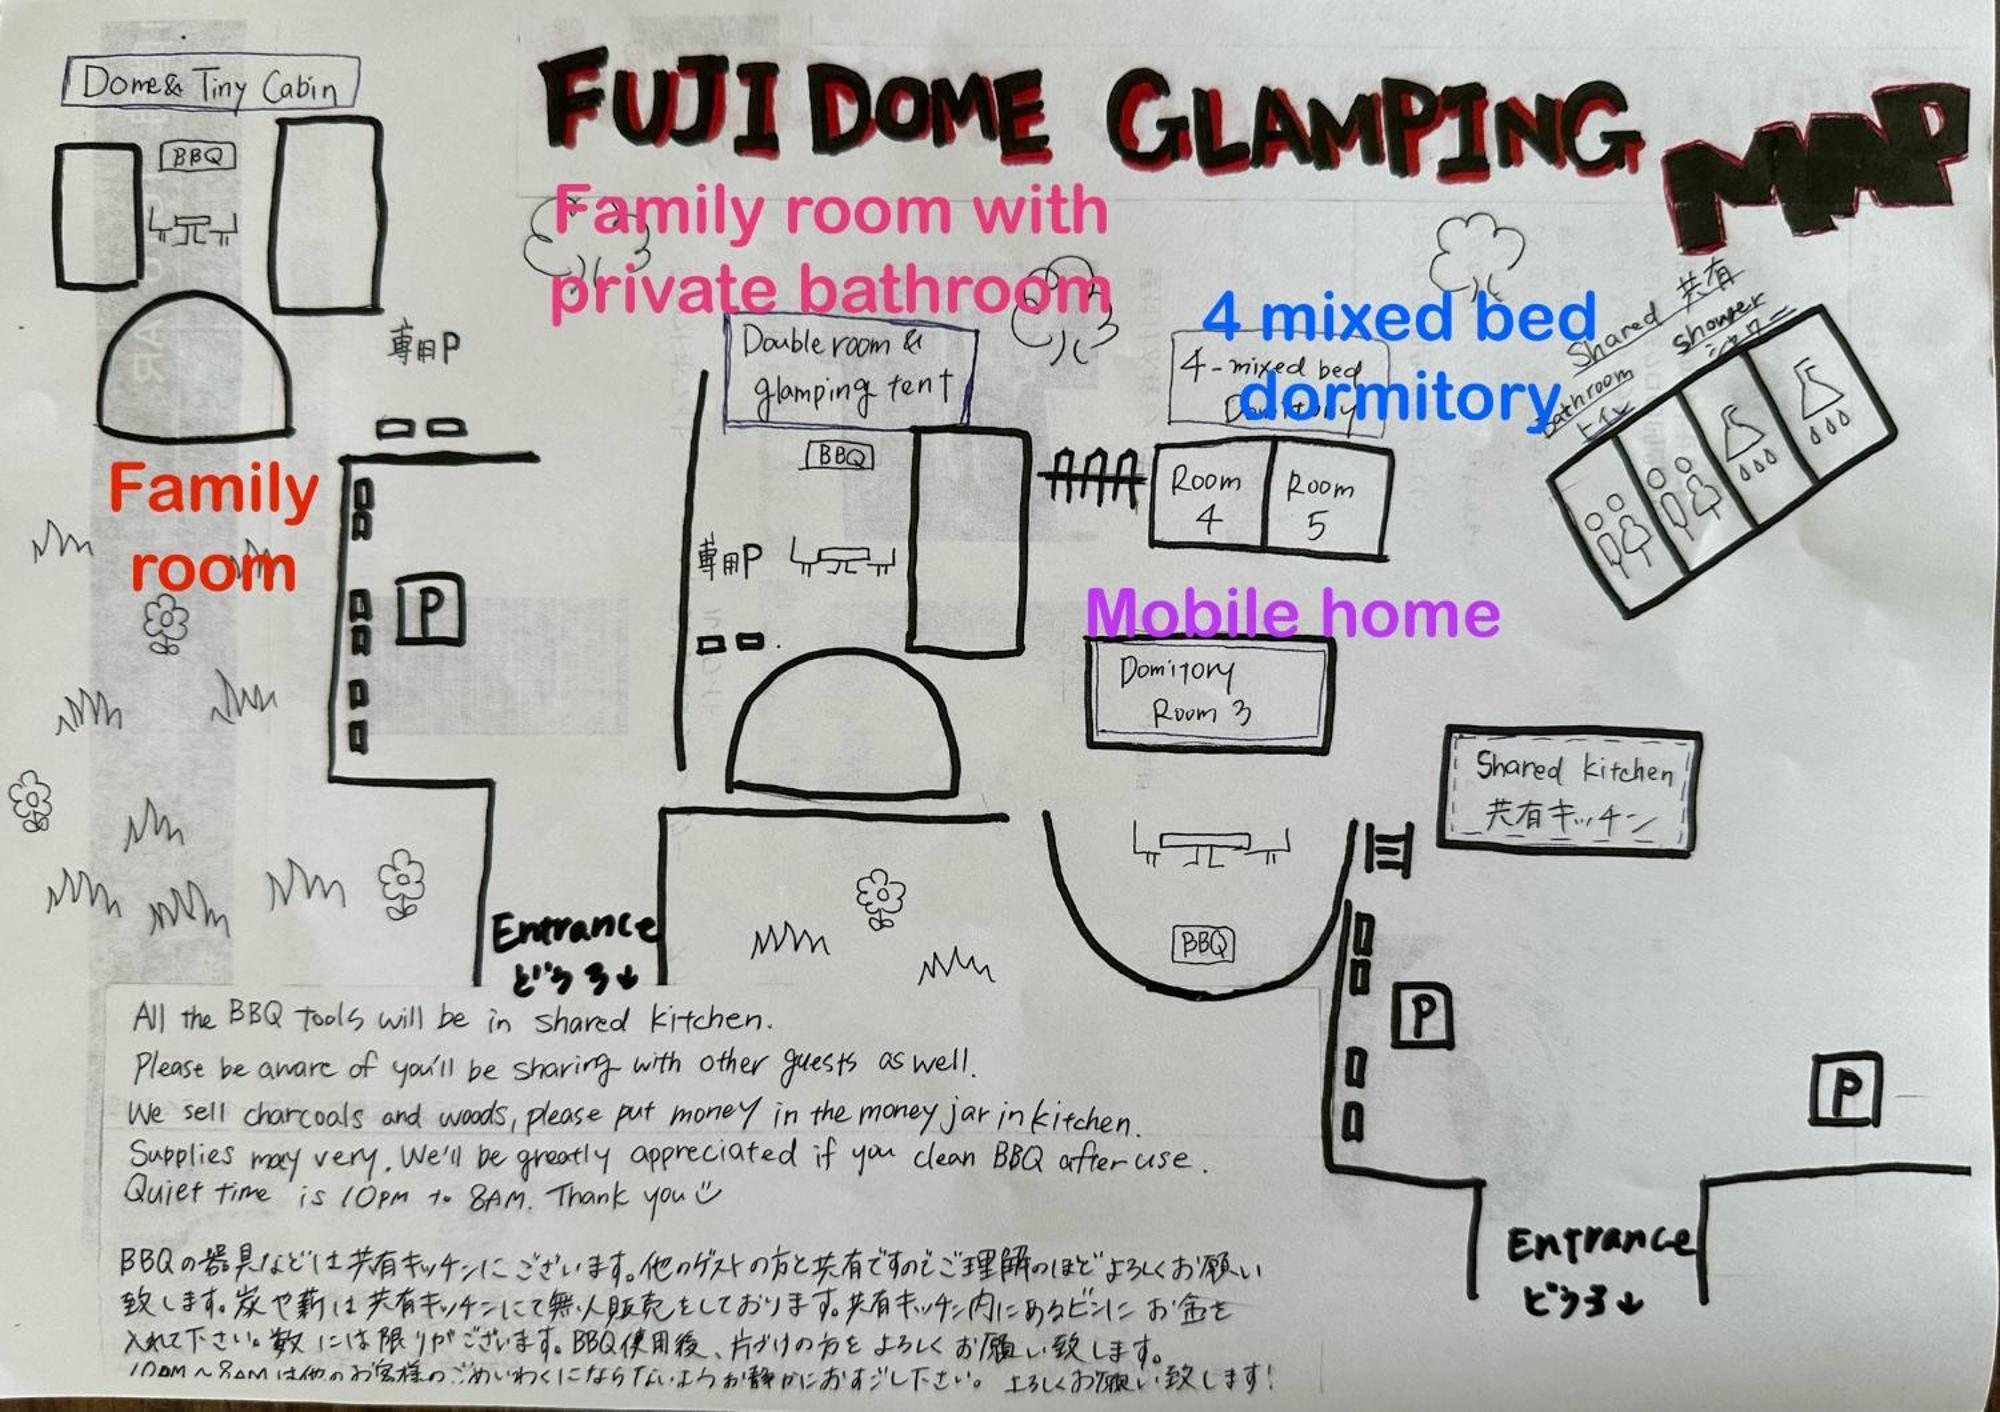 FUJI DOME GLAMPING MAP
Dome & Tiny Cabin
BBQ
専用P
Family room with
private bathroom
Double room &
glamping tent
BBQ
専用P
4 mixed bed
dormitory
4-mixed bed
Shared 共有
Shower
シャワー
Bathroom
トイレ
Room
4
Room
5
Family
room
P
Mobile home
Domitory
Room 3
Shared kitchen
共有キッチン
BBQ
P
P
Entrance
どうろ↓
Entrance
どうろ↓
All the BBQ tools will be in shared kitchen.
Please be aware of you'll be sharing with other guests as well.
We sell charcoals and woods, please put money in the money jar in kitchen.
Supplies may very. We'll be greatly appreciated if you clean BBQ after use.
Quiet time is 10PM to 8AM. Thank you
BBQの器具などは共有キッチンにございます。他のゲストの方と共有ですのでご理解のほどよろしくお願い
致します。炭や薪は共有キッチンにて無人販売をしております。共有キッチン内にあるビンにお金を
入れて下さい。数には限りがございます。BBQ使用後、片づけの方をよろしくお願い致します。
10PM〜8AMは他のお客様のごめいわくにならないようお静かにおすごし下さい。よろしくお願い致します!